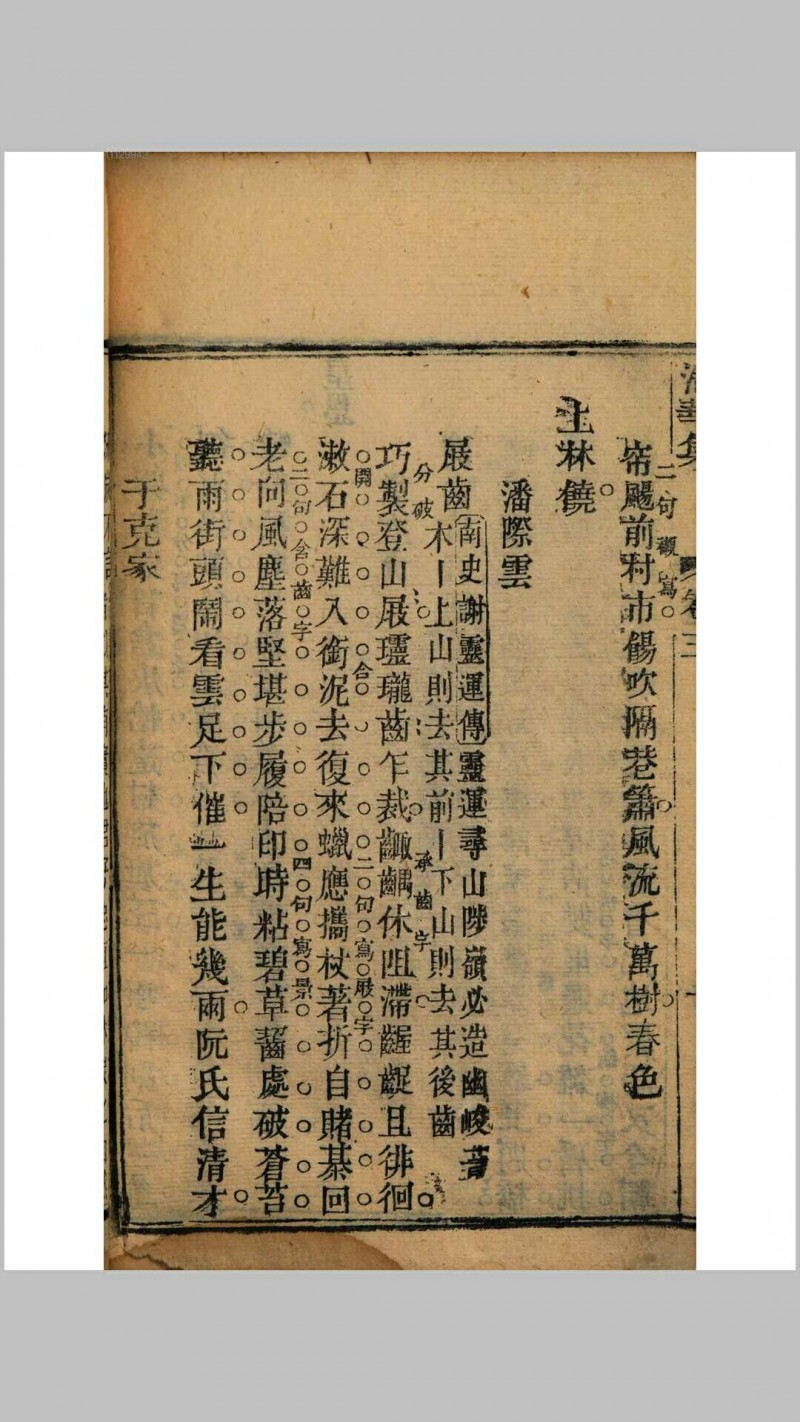 集 卷三
帘颺前村市餳吹隔巷簫風流千萬樹春色
二句襯寫
上林饒
潘際雲
屐齒 南史謝靈運傳靈運尋山陟嶺必造幽峻著
木丨上山則去其前丨下山則去其後齒
分破 承齒字
巧製登山屐瓏瓏齒乍裁齱齵休阻滯齷齪且徘徊
開 合 二句寫屐字
漱石深難入銜泥去復來蠟應攜杖著折自賭棊回
二句含齒字 四句寫景
老向風塵落堅堪步履陪印時粘碧草齧處破蒼苔
聽雨街頭鬧看雲足下催一生能幾兩阮氏信清才
于克家